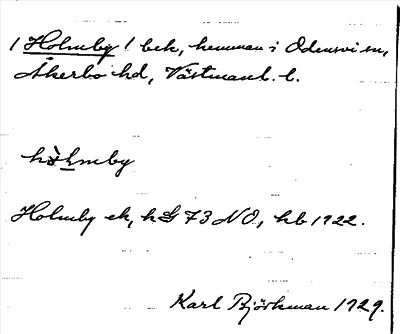 1 Holmby 1 bek, hemman i Odensvi sn,
Åkerbo hd, Västmanl. l.
Holmby ek, 73 NO, hb 1922.
Karl Björkman 1929.